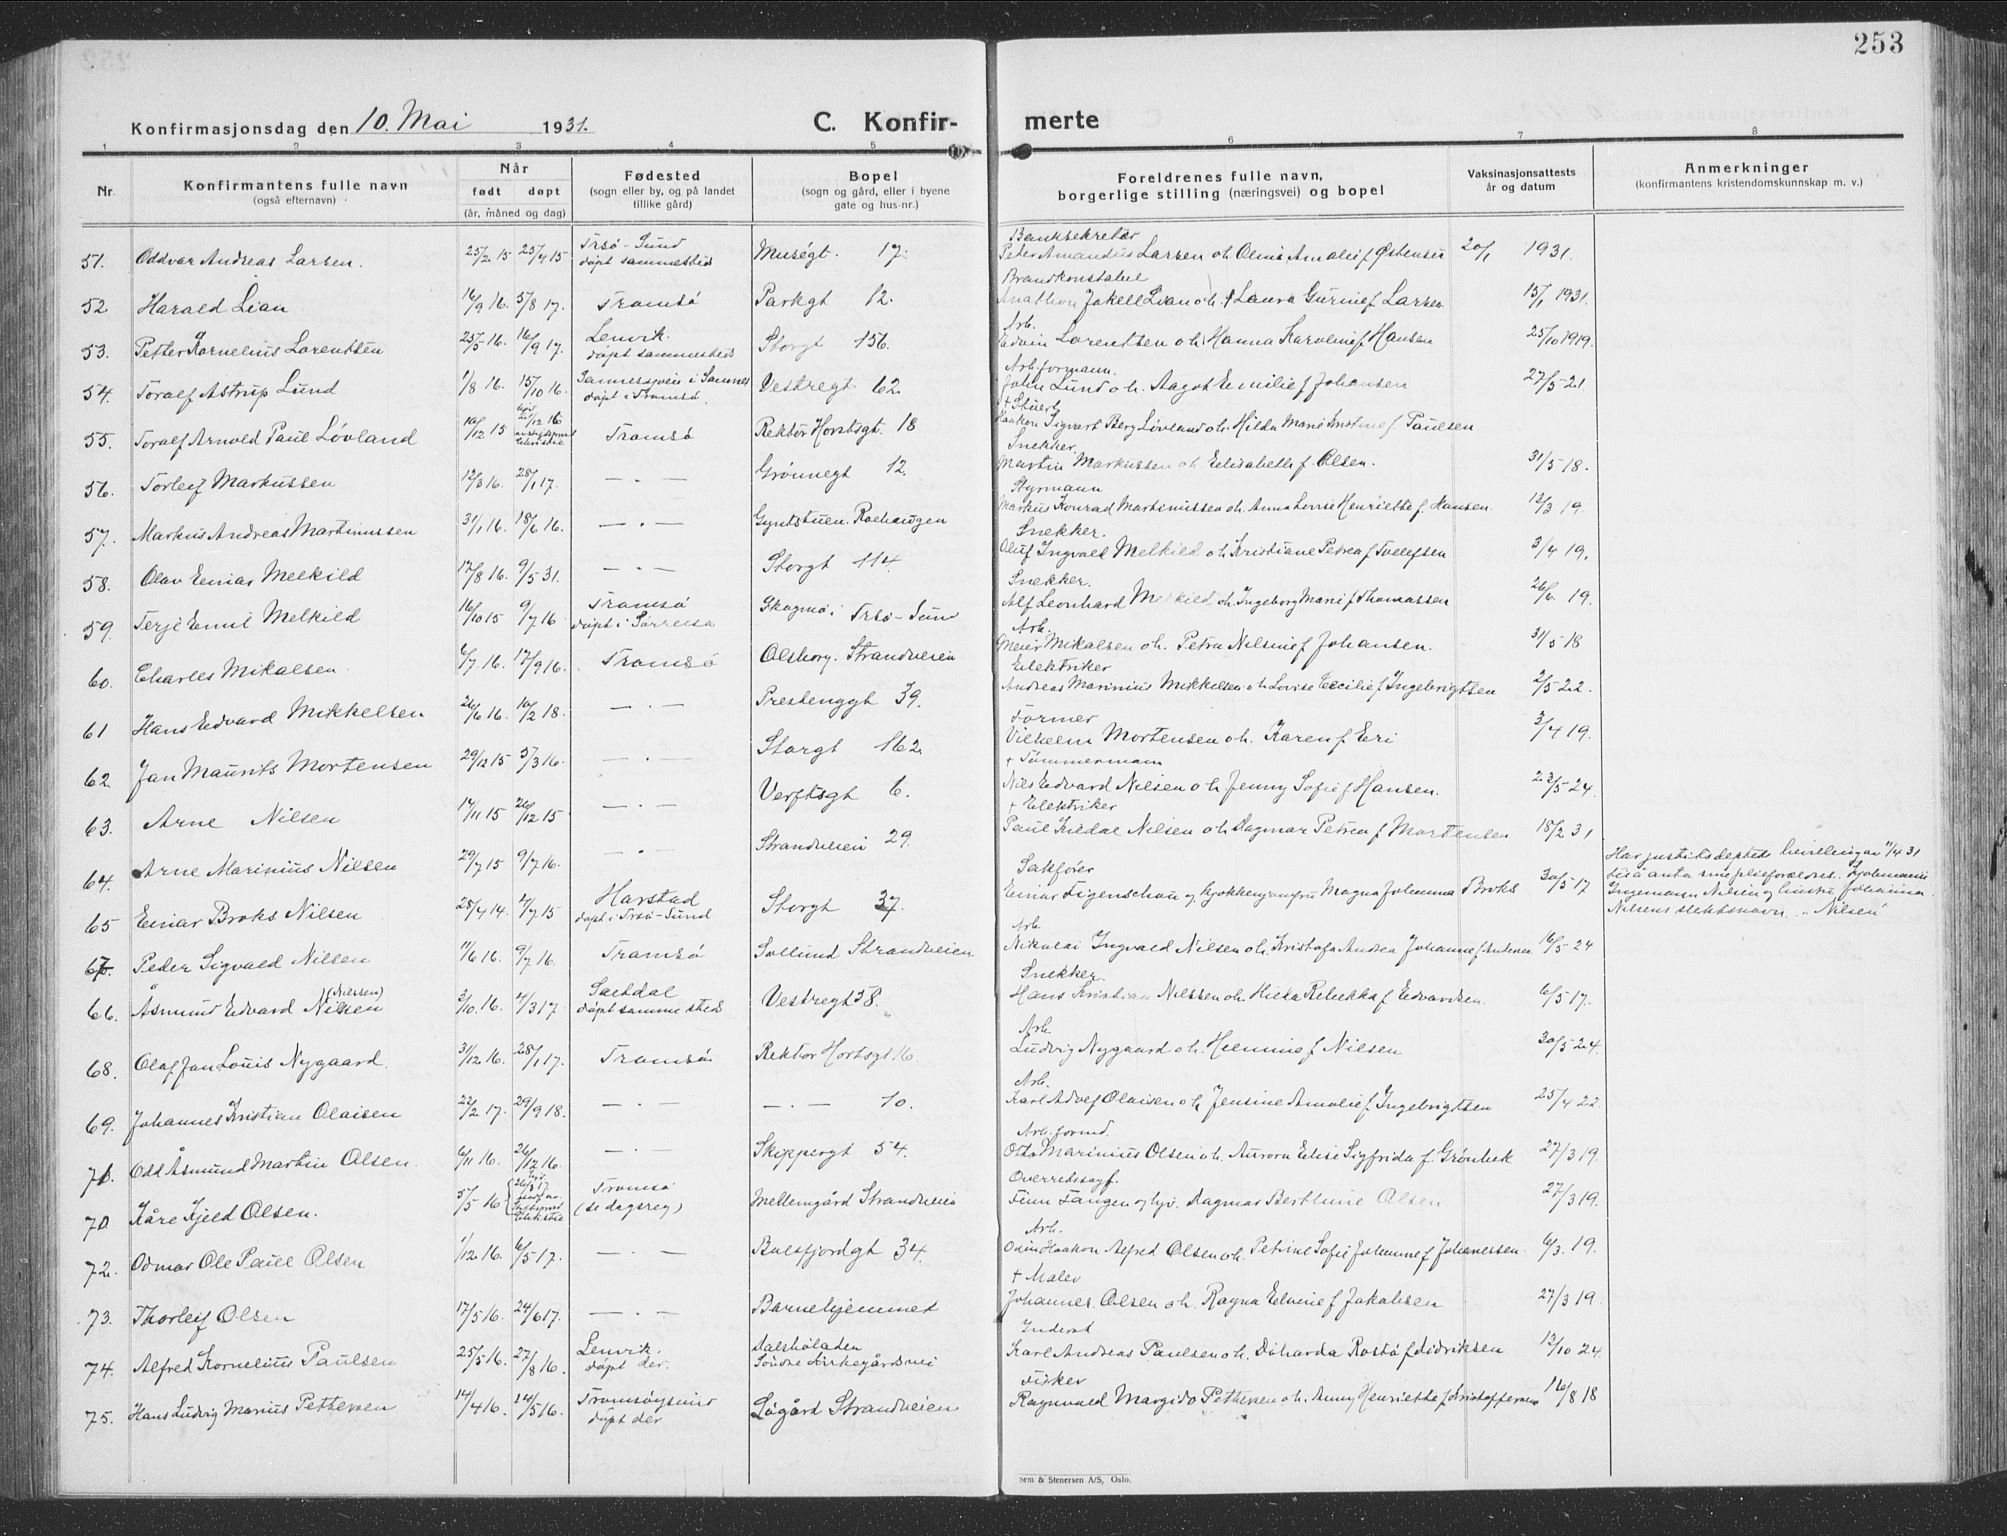 253
Konfirmasjonsdag den 10. Mai 1931. C. Konfir- merte
1 2 3 4 5 6 7 8
Nr. Konfirmantens fulle navn (også efternavn) Når født døpt (år, måned og dag) Fødested (sogn eller by, og på landet tillike gård) Bopel (sogn og gård, eller i byene gate og hus-nr.) Foreldrenes fulle navn, borgerlige stilling (næringsvei) og bopel Vaksinasjonsattests år og datum Anmerkninger (konfirmantens kristendomskunnskap m. v.)
51. Oddvar Andreas Larsen. 25/2 15 25/4 15 Trsø-Sund døpt sammesteds Muségt. 17. Banksekretær Peter Amandus Larsen o h. Amalie f Østensen 20/1 1931.
52 Harald Lian 16/9 16. 5/8 17. Tromsø Parkgt 12. Brandkonstabel Lian o h. Laura f Larsen 15/1 1931.
53. Petter Kornelius Lorentsen 25/5 16. 16/9 17. Lenvik. døpt sammesteds Storgt 156. Arb. Edvin Lorentsen o h. Hanna Karoline f Hansen 25/10 1919.
54. Toralf Astrup Lund 1/8 16. 15/10 16. døpt i Tromsø. Vestregt 62. Arb. formann. John Lund o h. Aagot Emilie f Johansen 27/5-21.
55. Toralf Arnold Paul Løvland 10/12 15 12 16 Tromsø Rektor Horstsgt. 18 + Stuert Haakon Sigvart Berg Løvland o h. Hilda Marie f Paulsen
56. Torleif Markussen 12/3 16. 28/1 17. — . — Grønnegt 12. Snekker. Martin Markussen o h Elisabeth f. Olsen. 31/5 18.
57. Markus Andreas Martinussen 31/1 16. 18/6 16. — . — Gyntstuen. Styrmann Markus Konrad Martinussen o h. Anna Lovise Henriette f. Hansen. 12/3 19.
58. Olav Einar Melkild 17/8 16. 9/5 31. — . — Storgt 114. Snekker. Oluf Ingvald Melkild o h Kristiane Petrea f 3/4 19.
59. Terje Emil Melkild 16/10 15 9/7 16 Tromsø døpt i Sørreisa Skogmo i Trsø-Sund Snekker. Alf Leonhard Melkild o h. Ingeborg Marie f Thomassen 26/6. 19.
60. Charles Mikalsen. 6/7 16. 17/9 16. Tromsø Olsborg. Strandveien Arb. Meier Mikalsen o h. Petra Nilsine f Johansen. 31/5 18
61 Hans Edvard Mikkelsen 26/6 16. 10/2 18. — . — Prestenggt 39. Elektriker Andreas Marinius Mikkelsen o h Lovise Cecilie f Ingebrigtsen 2/5 22.
62. Jan Maurits Mortensen 29/12 15 5/3 16. — . — Storgt 162. Former Vilhelm Mortensen o h. Karen f. Eri 3/4 19.
63. Arne Nilsen 14/11 15 26/12 15 — . — Verftsgt 6. + Tømmermann Nils Edvard Nilsen o h Jenny Sofie f Hansen. 23/5-24.
64. Arne Marinius Nilsen 29/7 15 9/7 16. — . — Strandveien 29. + Elektriker Paul Nilsen o h Dagmar Petrea f Mortensen 18/2 31
65 Einar Broks Nilsen 25/4 14. 4/7 15 Harstad døpt i Trsø-Sund Storgt 37. Sakfører Einar Figenschau og kjøkkenjomfru Magna Johanna Broks 30/5 17 Har justitsdeptets bevilling av 1/4 31 til å anta sine pleieforeldres. Ingemann Nilsen og hustru Johanna Nilsens slektsnavn „Nilsen"
67. Peder Sigvald Nilsen 11/6 16. 9/7 16. Tromsø Sollund Strandveien Arb. Nikolai Ingvald Nilsen o h. Kristofa Andrea Johanne f Andersen 16/5-24
66. Åsmund Edvard Nilsen (Nilssen) 3/10. 16. 4/3 17. døpt sammesteds Vestregt 38. Snekker. Hans Kristian Nilssen o h. Rebekka f Edvardsen. 6/5 17.
68. Olaf Jan Louis Nygaard. 31/12 16. 28/1 17. Tromsø Rektor Hortsgt. 16 Arb. Ludvig Nygaard o h. Helmine f Nilsen 30/5-24.
69. Johannes Kristian Olaisen 22/2 17. 29/9 18. — . — — . — 10. Arb. Karl Olaisen o h Jensine Amalie f. Ingebrigtsen 25/4 22.
71. Odd Åsmund Martin Olsen. 6/11 16. 26/12 16. — . — Skippergt 54. Arb. formd. Otto Marinius Olsen o h. Aurora Elise Sigfrida f. Grønbek 27/3 19.
70 Kåre Kjeld Olsen. 5/5 16 26/3 17. Tromsø (se dagsreg) Mellemgård Strandveien Overretssagf. Finn Fangen og Dagmar Olsen 27/3 19.
72. Odmar Ole Paul Olsen 1/12 16. 6/5 17. — . — Balsfjordgt 34. Arb. Odin Haakon Alfred Olsen o h. Petrine Sofie Johanne f Johanessen. 6/3. 19.
73. Thorleif Olsen 17/5 16. 24/6 17. — . — Barnehjemmet + Maler Johannes Olsen o h. Ragna Elvine f Jakobsen 27/3 19.
74. Alfred Kornelius Paulsen 25/5 16. 27/8 16. Lenvik. døpt der. Søndre Kirkegårdsvei Inderst Karl Andreas Paulsen o h. f Didriksen 13/10 24
75. Hans Ludvig Marius Pettersen 14/4 16. 14/5 16. Tromsøysund døpt der Løgård Strandveien Fisker Ragnvald Margido Pettersen o h. Anny Henriette f Kristoffersen 16/8 18
Sem & Stenersen A/S, Oslo.